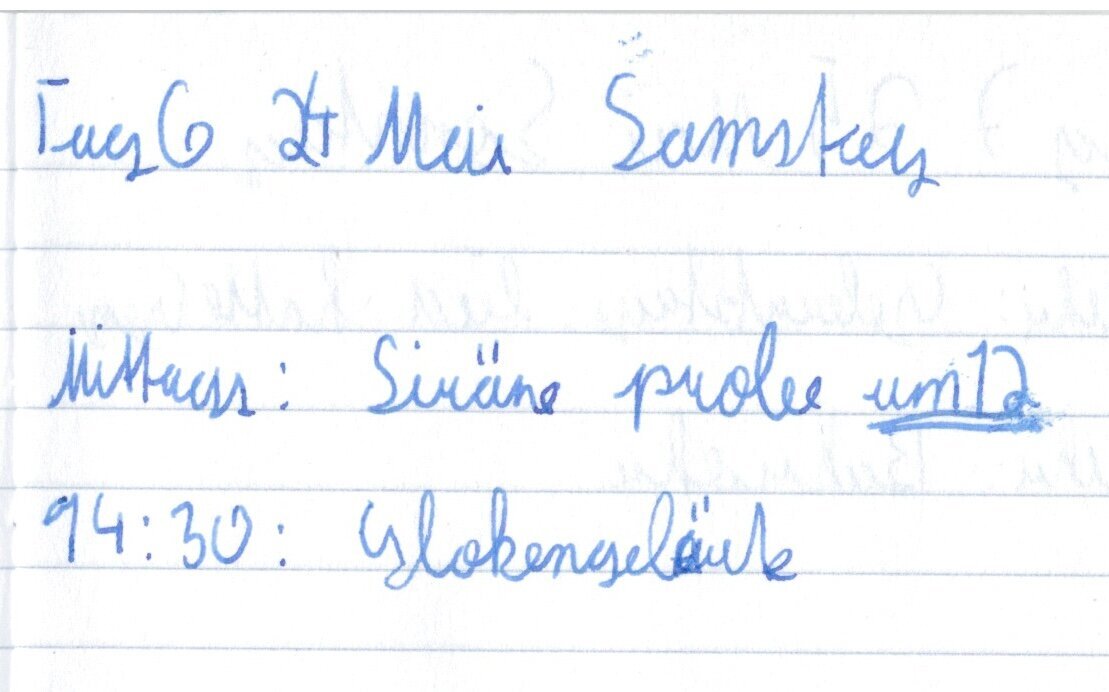 Tag 6 24 Mai Samstag
Mittags: Siräne probe um 12
14:30: Glokengeläute